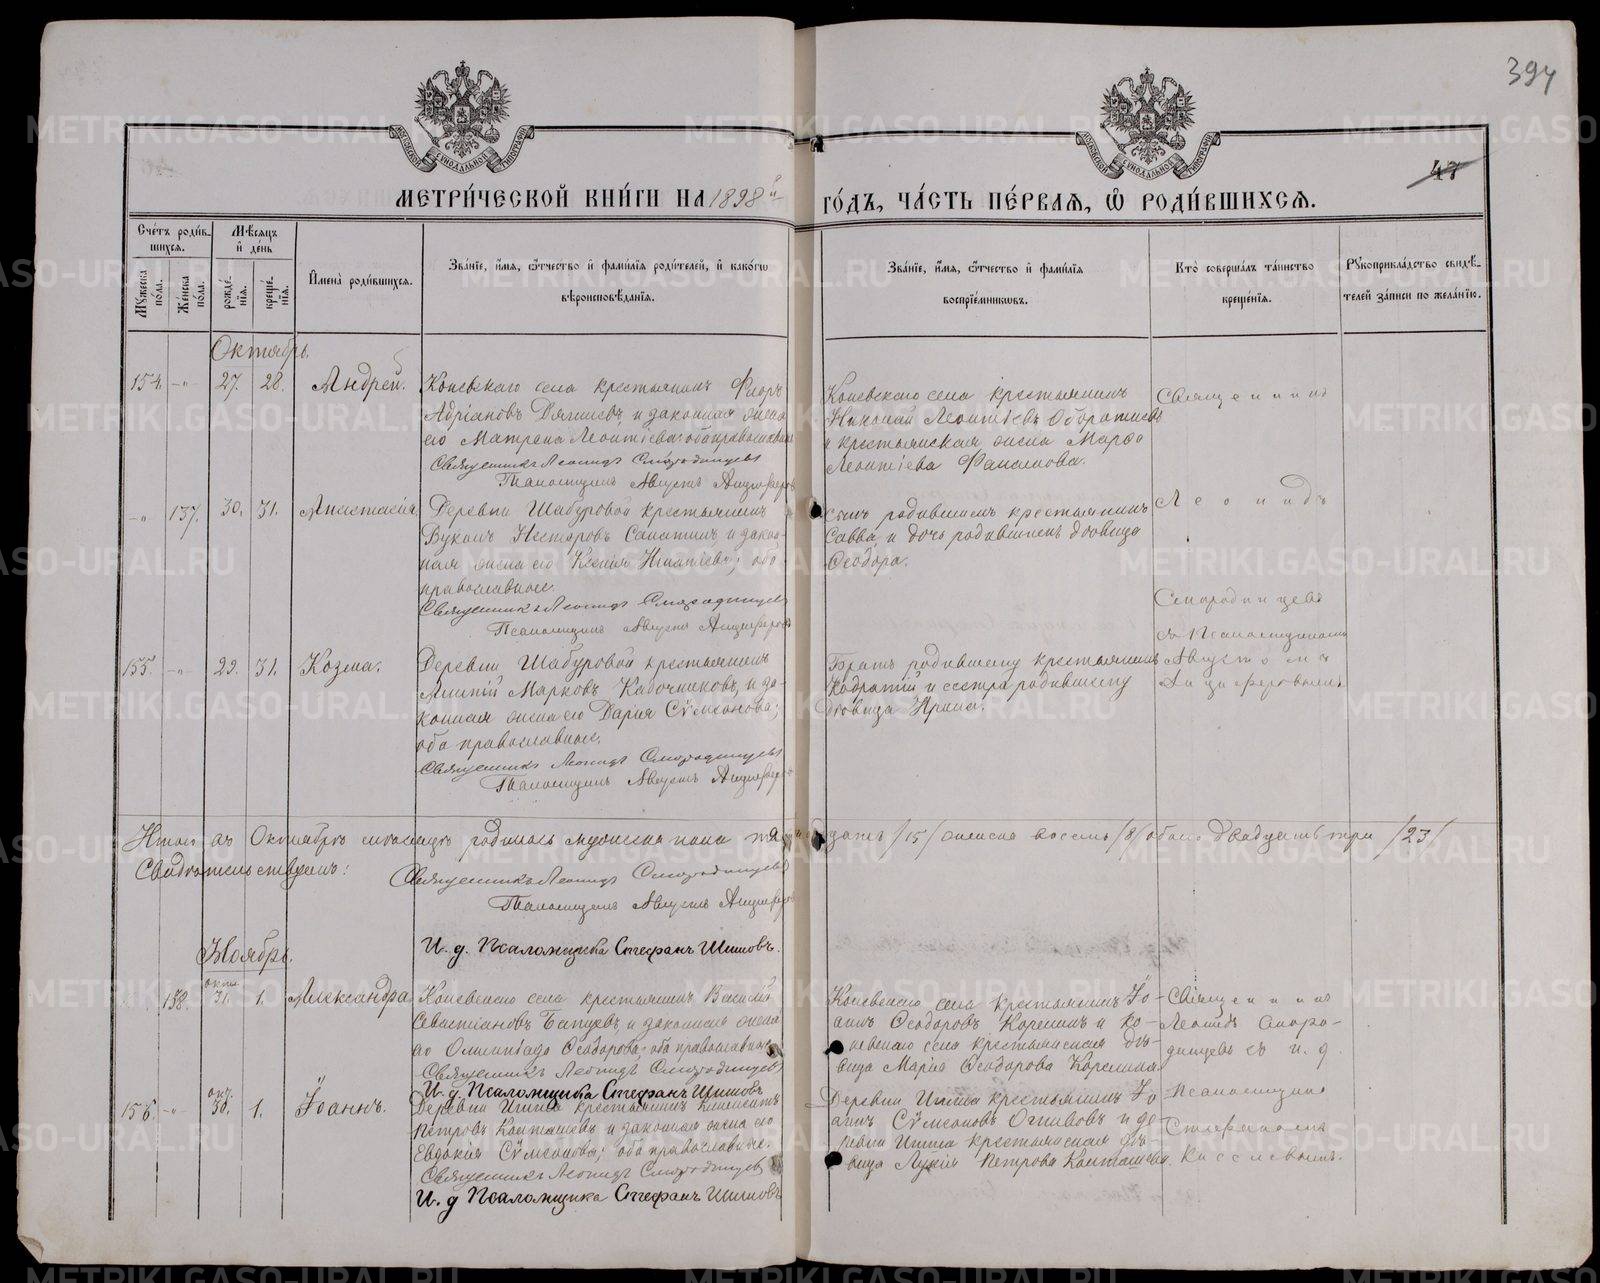 394
47
МЕТРИ́ЧЕСКОЙ КНИ́ГИ НА 1898 й
ГО́ДЪ, ЧА́СТЬ ПЕ́РВАЯ, Ѽ РОДИ́ВШИХСЯ.
Сче́тъ роди́вшихся.
Мꙋ́жеска по́ла.
Же́нска по́ла.
Мѣ́сяцъ и҆ де́нь
рожде́нїя.
креще́нїя.
И҆мена̀ роди́вшихся.
Зва́нїе, и҆́мя, ѻ҆́тчество и҆ фами́лїя роди́телей, и҆ како́гѡ
вѣроисповѣ́данїя.
Зва́нїе, и҆́мя, ѻ҆́тчество и҆ фами́лїя
воспрїе́мниковъ.
Кто̀ соверша́лъ та́инство
креще́нїя.
Рꙋкоприкла́дство свидѣ́телей за́писи по жела́нїю.
Октябрь.
154. -"- 27. 28. Андрей.
Коневскаго села крестьянинъ Флоръ
Адріановъ и законная жена
его Матрона Леонтіева; оба православные
Священникъ Леонидъ Смородинцевъ
Псаломщикъ Августъ Анциферовъ
Коневскаго села крестьянинъ
Николай Леонтіевъ
и крестьянская жена Марѳа
Леонтіева
Священникъ
-"- 137. 30. 31. Анастасія
Деревни Шабуровой крестьянинъ
Вуколъ Несторовъ и закон-
ная жена его Ксенія Игнатіева; оба
православные.
Священникъ Леонидъ Смородинцевъ
Псаломщикъ Августъ Анциферовъ
сынъ родившихъ крестьянинъ
Савва и дочь родившихъ дѣвица
Ѳеодора.
Леонидъ
Смородинцевъ
съ Псаломщикомъ
155. -"- 29. 31. Козма.
Деревни Шабуровой крестьянинъ
Марковъ и за-
конная жена его Дарія Сѵмеонова;
оба православные.
Священникъ Леонидъ Смородинцевъ
Псаломщикъ Августъ Анциферовъ
Братъ родившему крестьянинъ
Кодратій и сестра родившему
дѣвица Ирина.
Августомъ
Анциферовымъ
Итого въ Октябрѣ мѣсяцѣ родилось мужска пола пятнадцать /15/ женска восемь /8/ обоего двадцать три /23/
Свидѣтельствуемъ:
Священникъ Леонидъ Смородинцевъ
Псаломщикъ Августъ Анциферовъ
Ноябрь.
И. д. Псаломщика Стефанъ Шишовъ.
138. окт. 31. 1. Александра
Коневскаго села крестьянинъ Василій
Севастіановъ и законная жена
его Олимпіада Ѳеодорова; оба православные
Священникъ Леонидъ Смородинцевъ
И. д. Псаломщика Стефанъ Шишовъ
Коневскаго села крестьянинъ Іо-
аннъ Ѳеодоровъ Корелинъ и Ко-
невскаго села крестьянская дѣ-
вица Марія Ѳеодорова Корелина.
Священникъ
Леонидъ Сморо-
динцевъ съ и. д.
156. -"- окт. 30. 1. Іоаннъ.
Деревни крестьянинъ Климентъ
Петровъ и законная жена его
Евдокія Сѵмеонова; оба православные.
Священникъ Леонидъ Смородинцевъ
И. д Псаломщика Стефанъ Шишовъ
Деревни крестьянинъ Іо-
аннъ Сѵмеоновъ и де-
ревни крестьянская дѣ-
вица Петрова
Псаломщика
Стефаномъ